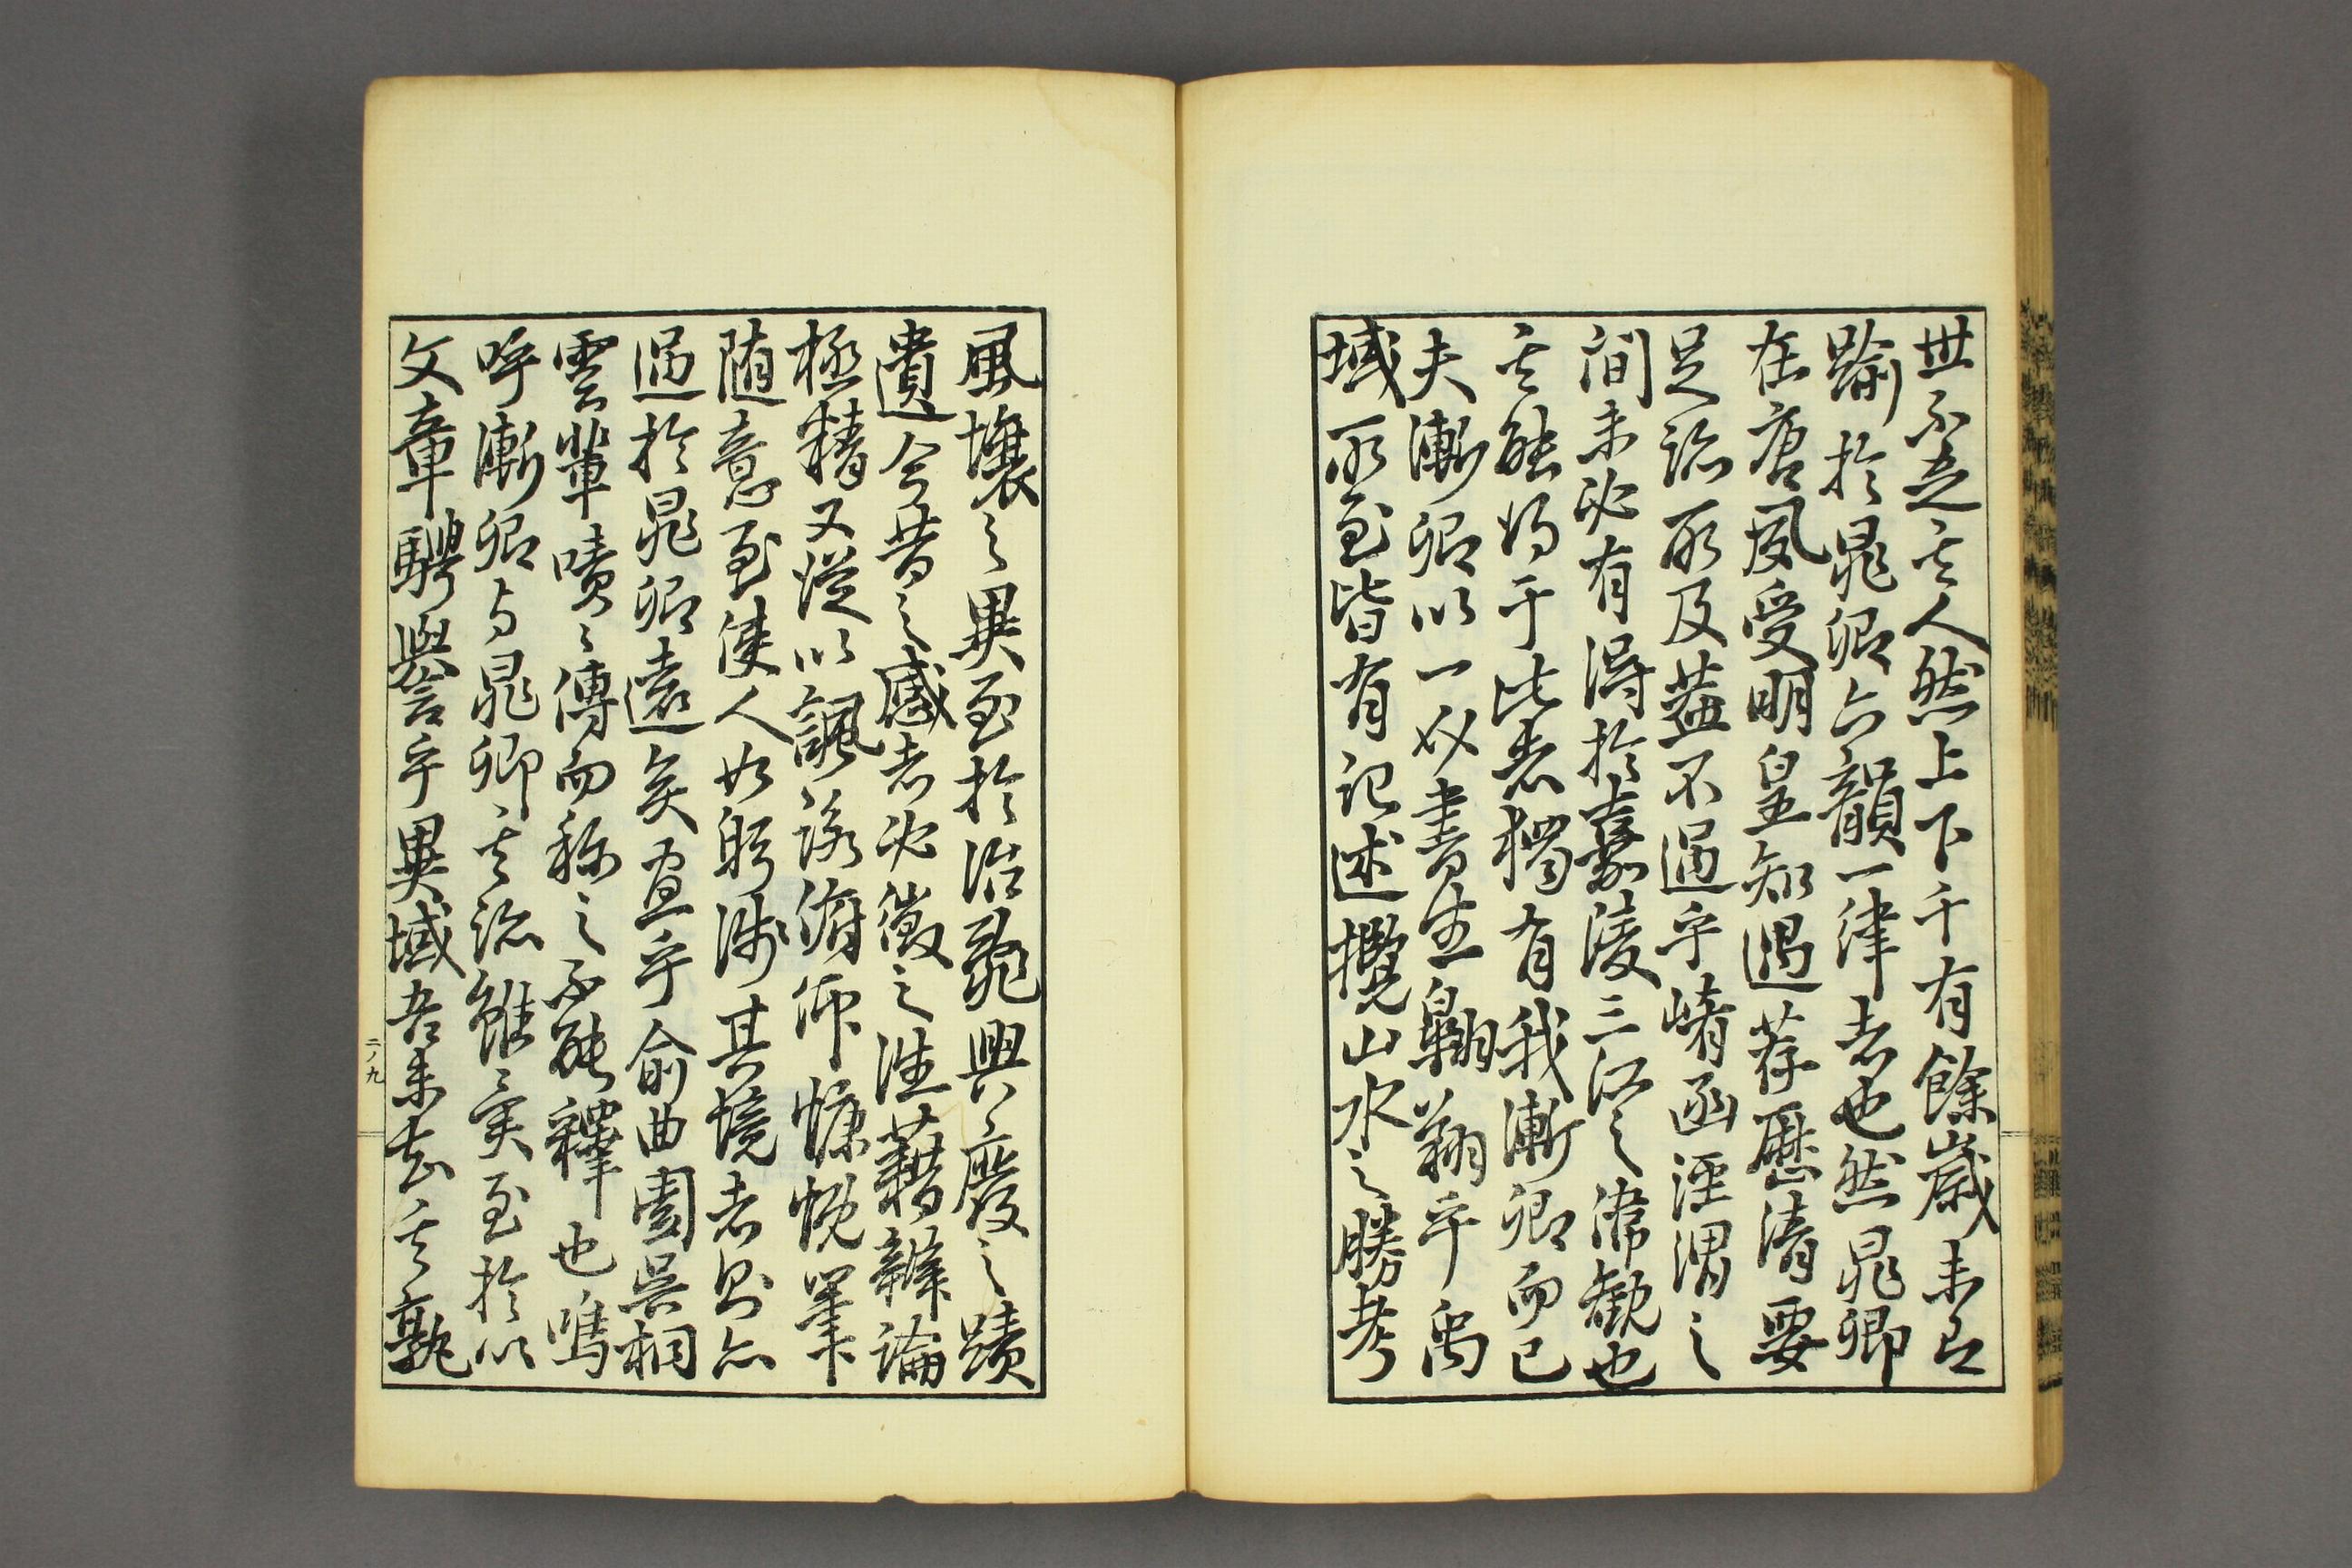 世不乏其人然上下千有餘歲未有
踰於晁卿六韻一律者也然晁卿
在唐夙受明皇知遇荐歷清要
足跡所及蓋不過乎崤函涇渭之
間未必有得於嘉陵三江之偉観也
其能得于此者獨有我漸卿而已
夫漸卿以一介書生翺翔乎禹
域所至皆有記述攬山水之勝考
風壤之異至於治亂興廢之蹟
遺今昔之感者必徵之往藉辯論
極精又從以諷詠俯仰慷慨筆
隨意至使人如躬涉其境者則亦
過於晁卿遠矣宜乎俞曲園吳桐
雲輩嘖々傳而稱之不能釋也嗚
呼漸卿与晁卿其跡雖異至於以
文章騁譽乎異域吾未知其孰
二ノ九